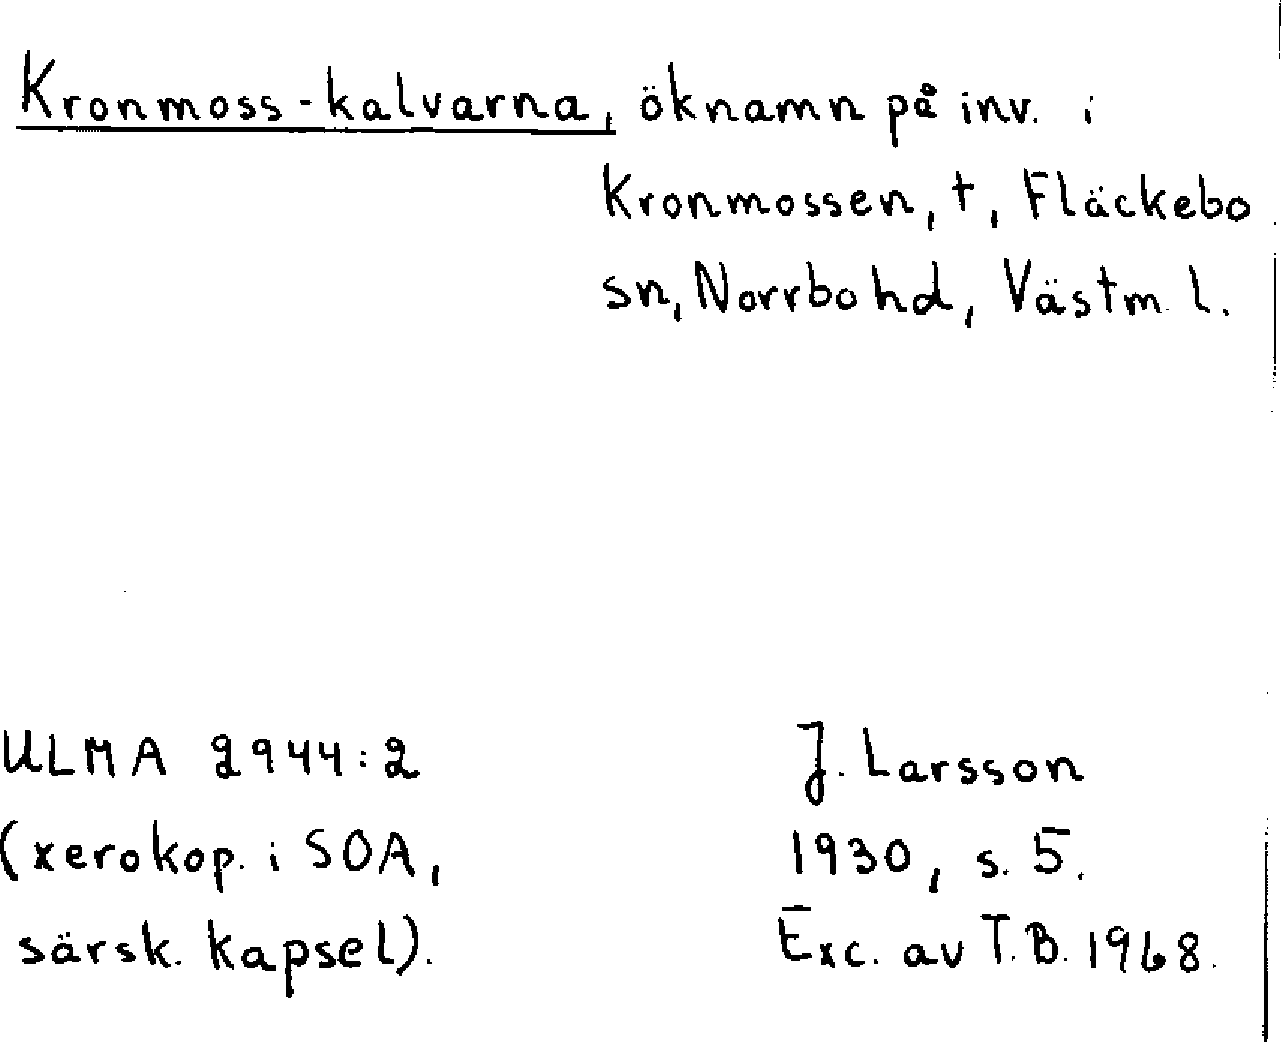 Kronmoss-kalvarna, öknamn på inv. i
Kronmossen, t, Fläckebo
sn, Norrbo hd, Västm. l.
ULMA 2944:2
(xerokop. i SOA,
särsk. kapsel).
J. Larsson
1930, s. 5.
Exc. av T.B. 1968.